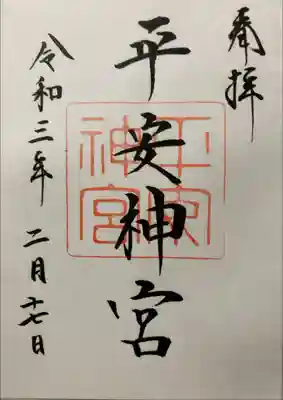 奉拝
平安神宮
平安
神宮
令和三年 二月十七日